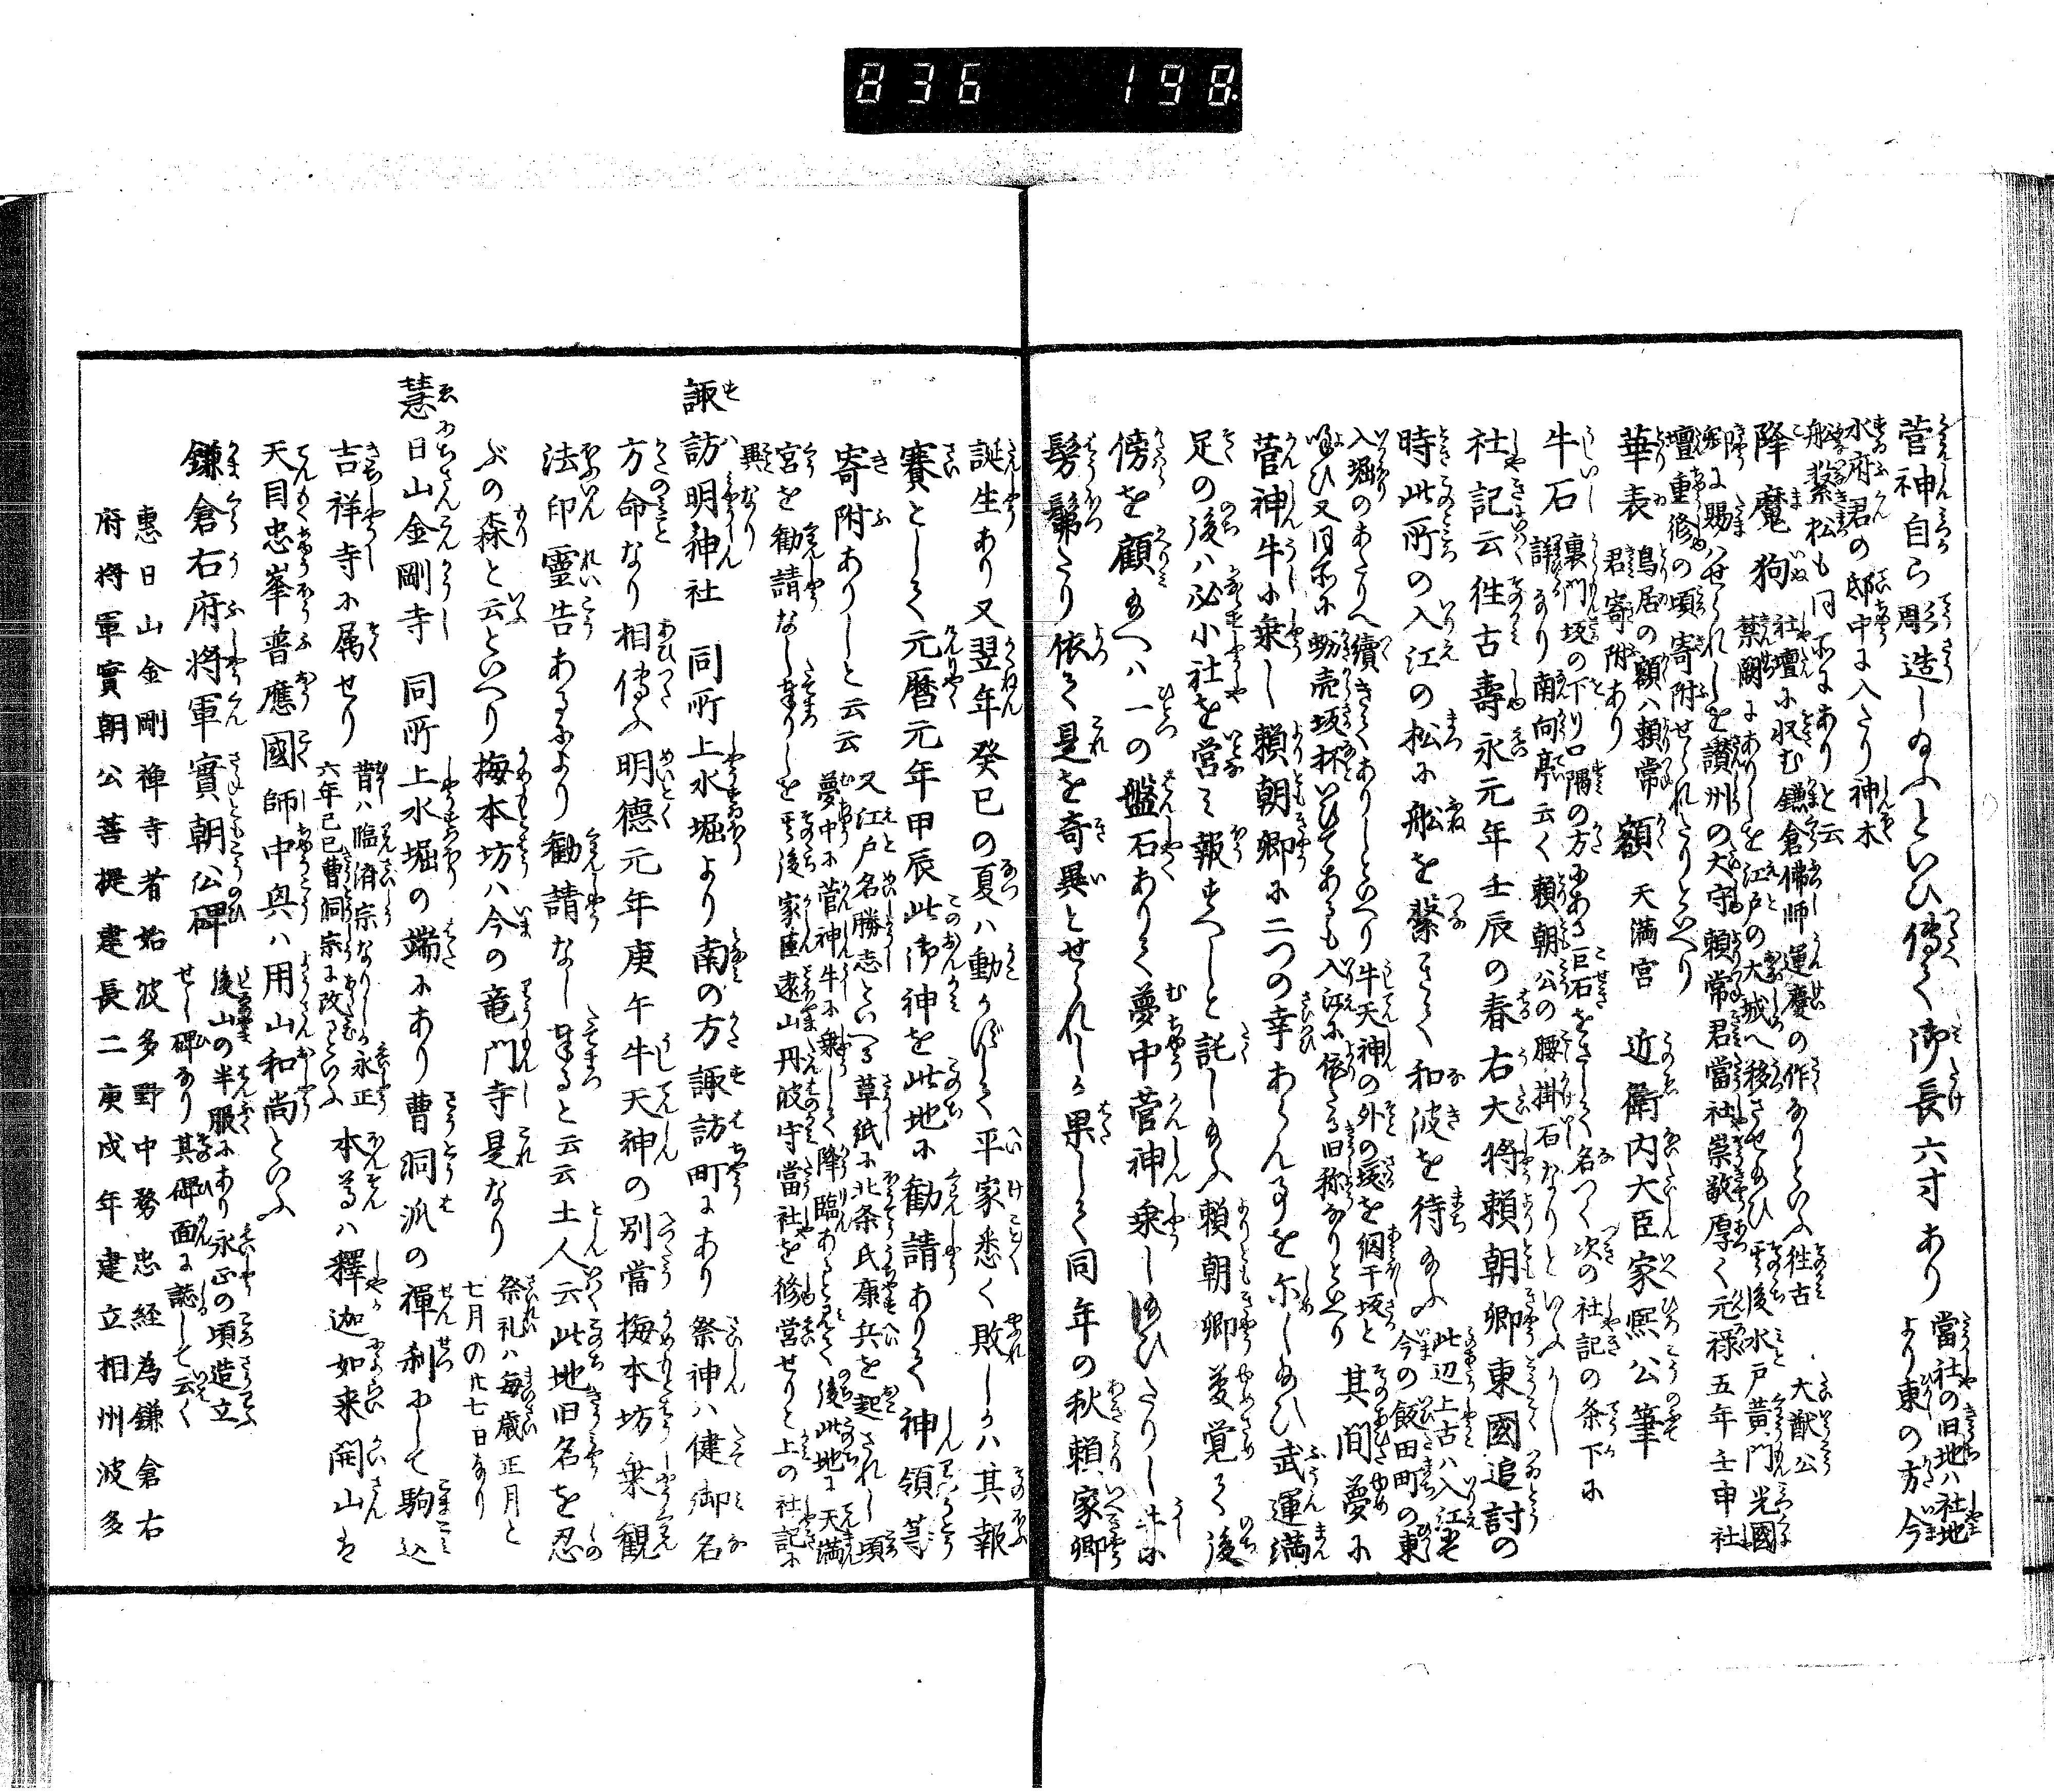 836 198.
菅神自ら周造し給ふといひ傳へて御長六寸あり
當社の旧地ハ社地
より東の方今
水府君の邸中に入たり神木
船繋松も同所にありと云
降魔狗
社壇に収む鎌倉佛師運慶の作なりといふ往古
禁闕にありしを江戸の大城へ移させ給ひ其後水戸黄門光國
大猷公
卿に賜ハせられしを讃州の大守頼常君當社崇敬厚く元禄五年壬申社
壇重修の頃寄附せられたりといへり
華表
鳥居の額ハ頼常
君寄附あり
額 天満宮 近衛内大臣家熙公筆
牛石
裏門坂の下り口隅の方にある巨石をさして名つく次の社記の条下に
詳なり南向亭云く頼朝公の腰掛石なりといふよし
社記云往古壽永元年壬辰の春右大将頼朝卿東國追討の
時此所の入江の松に船を繋きて和波を待給ふ
此辺上古ハ入江にて
今の飯田町の東
入堀のあたりへ續きてありしといへり牛天神の外の坂を網干坂と
唱ひ又同所に蛎売坂抔いひてあるも入江に依たる旧称なりといへり
其間夢に
菅神牛に乗し頼朝卿に二つの幸あらん事を示し給ひ武運満
足の後ハ必小社を営ミ報すへしと託し給ふ頼朝卿夢覚て後
傍を顧給へハ一の盤石ありて夢中菅神乗し給ひたりし牛に
髣髴たり依て是を奇異とせられしか果して同年の秋頼家卿
誕生あり又翌年癸巳の夏ハ動かずして平家悉く敗しかハ其報
賽として元暦元年甲辰此御神を此地に勧請ありて神領等
寄附ありしと云云
又江戸名勝志といへる草紙に北条氏康兵を起されし頃
夢中に菅神牛に乗して降臨あると見て後此地に天満
宮を勧請なし奉りしを其後家臣遠山丹波守當社を修営せりと上の社記に
異なり
諏訪明神社 同所上水堀より南の方諏訪町にあり祭神ハ健御名
方命なり相傳ふ明徳元年庚午牛天神の別當梅本坊乗観
法印霊告あるにより勧請なし奉ると云云土人云此地旧名を忍
ぶの森と云といへり梅本坊ハ今の竜門寺是なり
祭礼ハ毎歳正月と
七月の廿七日なり
慧日山金剛寺 同所上水堀の端にあり曹洞派の禅刹にして駒込
吉祥寺に属せり
昔ハ臨済宗なりしか永正
六年己巳曹洞宗に改るといふ
本尊ハ釋迦如来開山は
天目忠峯普應國師中興ハ用山和尚といふ
鎌倉右府将軍實朝公碑
後山の半腹にあり永正の頃造立
せし碑なり其碑面に誌して云く
惠日山金剛禅寺者始波多野中務忠経為鎌倉右
府将軍實朝公菩提建長二庚戌年建立相州波多